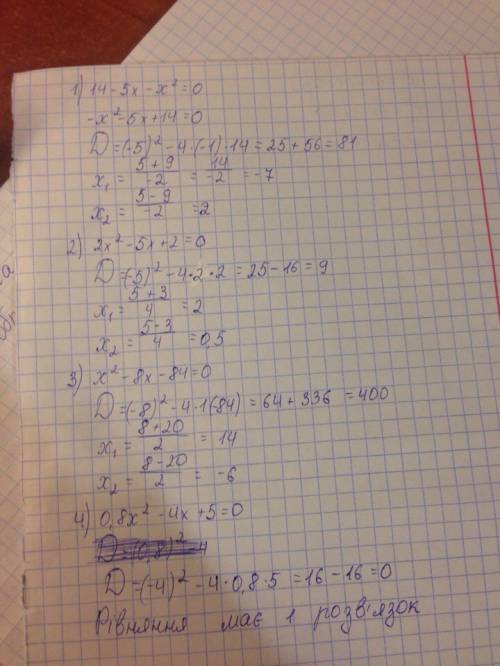 1) 14 - 5x - x² = 0
-x² - 5x + 14 = 0
D = (-5)² - 4 · (-1) · 14 = 25 + 56 = 81
x₁ = (5 + 9)/(-2) = 14/(-2) = -7
x₂ = (5 - 9)/(-2) = 2
2) 2x² - 5x + 2 = 0
D = (-5)² - 4 · 2 · 2 = 25 - 16 = 9
x₁ = (5 + 3)/4 = 2
x₂ = (5 - 3)/4 = 0,5
3) x² - 8x - 84 = 0
D = (-8)² - 4 · 1 (-84) = 64 + 336 = 400
x₁ = (8 + 20)/2 = 14
x₂ = (8 - 20)/2 = -6
4) 0,8x² - 4x + 5 = 0
D = (0,8)² - 4
D = (-4)² - 4 · 0,8 · 5 = 16 - 16 = 0
Рівняння має 1 розв'язок